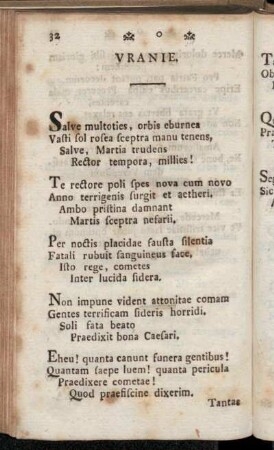 32 O
VRANIE.
Salve multoties, orbis eburnea
Vasti sol rosea sceptra manu tenens,
Salve, Martia trudens
Rector tempora, millies!
Te rectore poli spes nova cum novo
Anno terrigenis surgit et aetheri.
Ambo pristina damnant
Martis sceptra nefarii,
Per noctis placidae fausta silentia
Fatali rubuit sanguineus face,
Isto rege, cometes
Inter lucida sidera.
Non impune vident attonitae comam
Gentes terrificam sideris horridi.
Soli fata beato
Praedixit bona Caesari.
Eheu! quanta canunt funera gentibus!
Quantam saepe luem! quanta pericula
Praedixere cometae!
Quod praefiscine dixerim.
Tantae